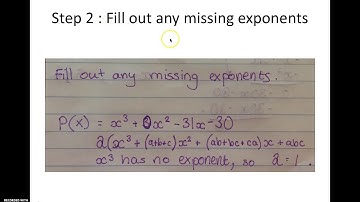 Step 2 : Fill out any missing exponents
Fill out any missing exponents.
P(x) = x³ + 0x² - 31x - 30
a(x³ + (a+b+c)x² + (ab+bc+ca)x + abc
x³ has no exponent, so a = 1.
RECORDED WITH